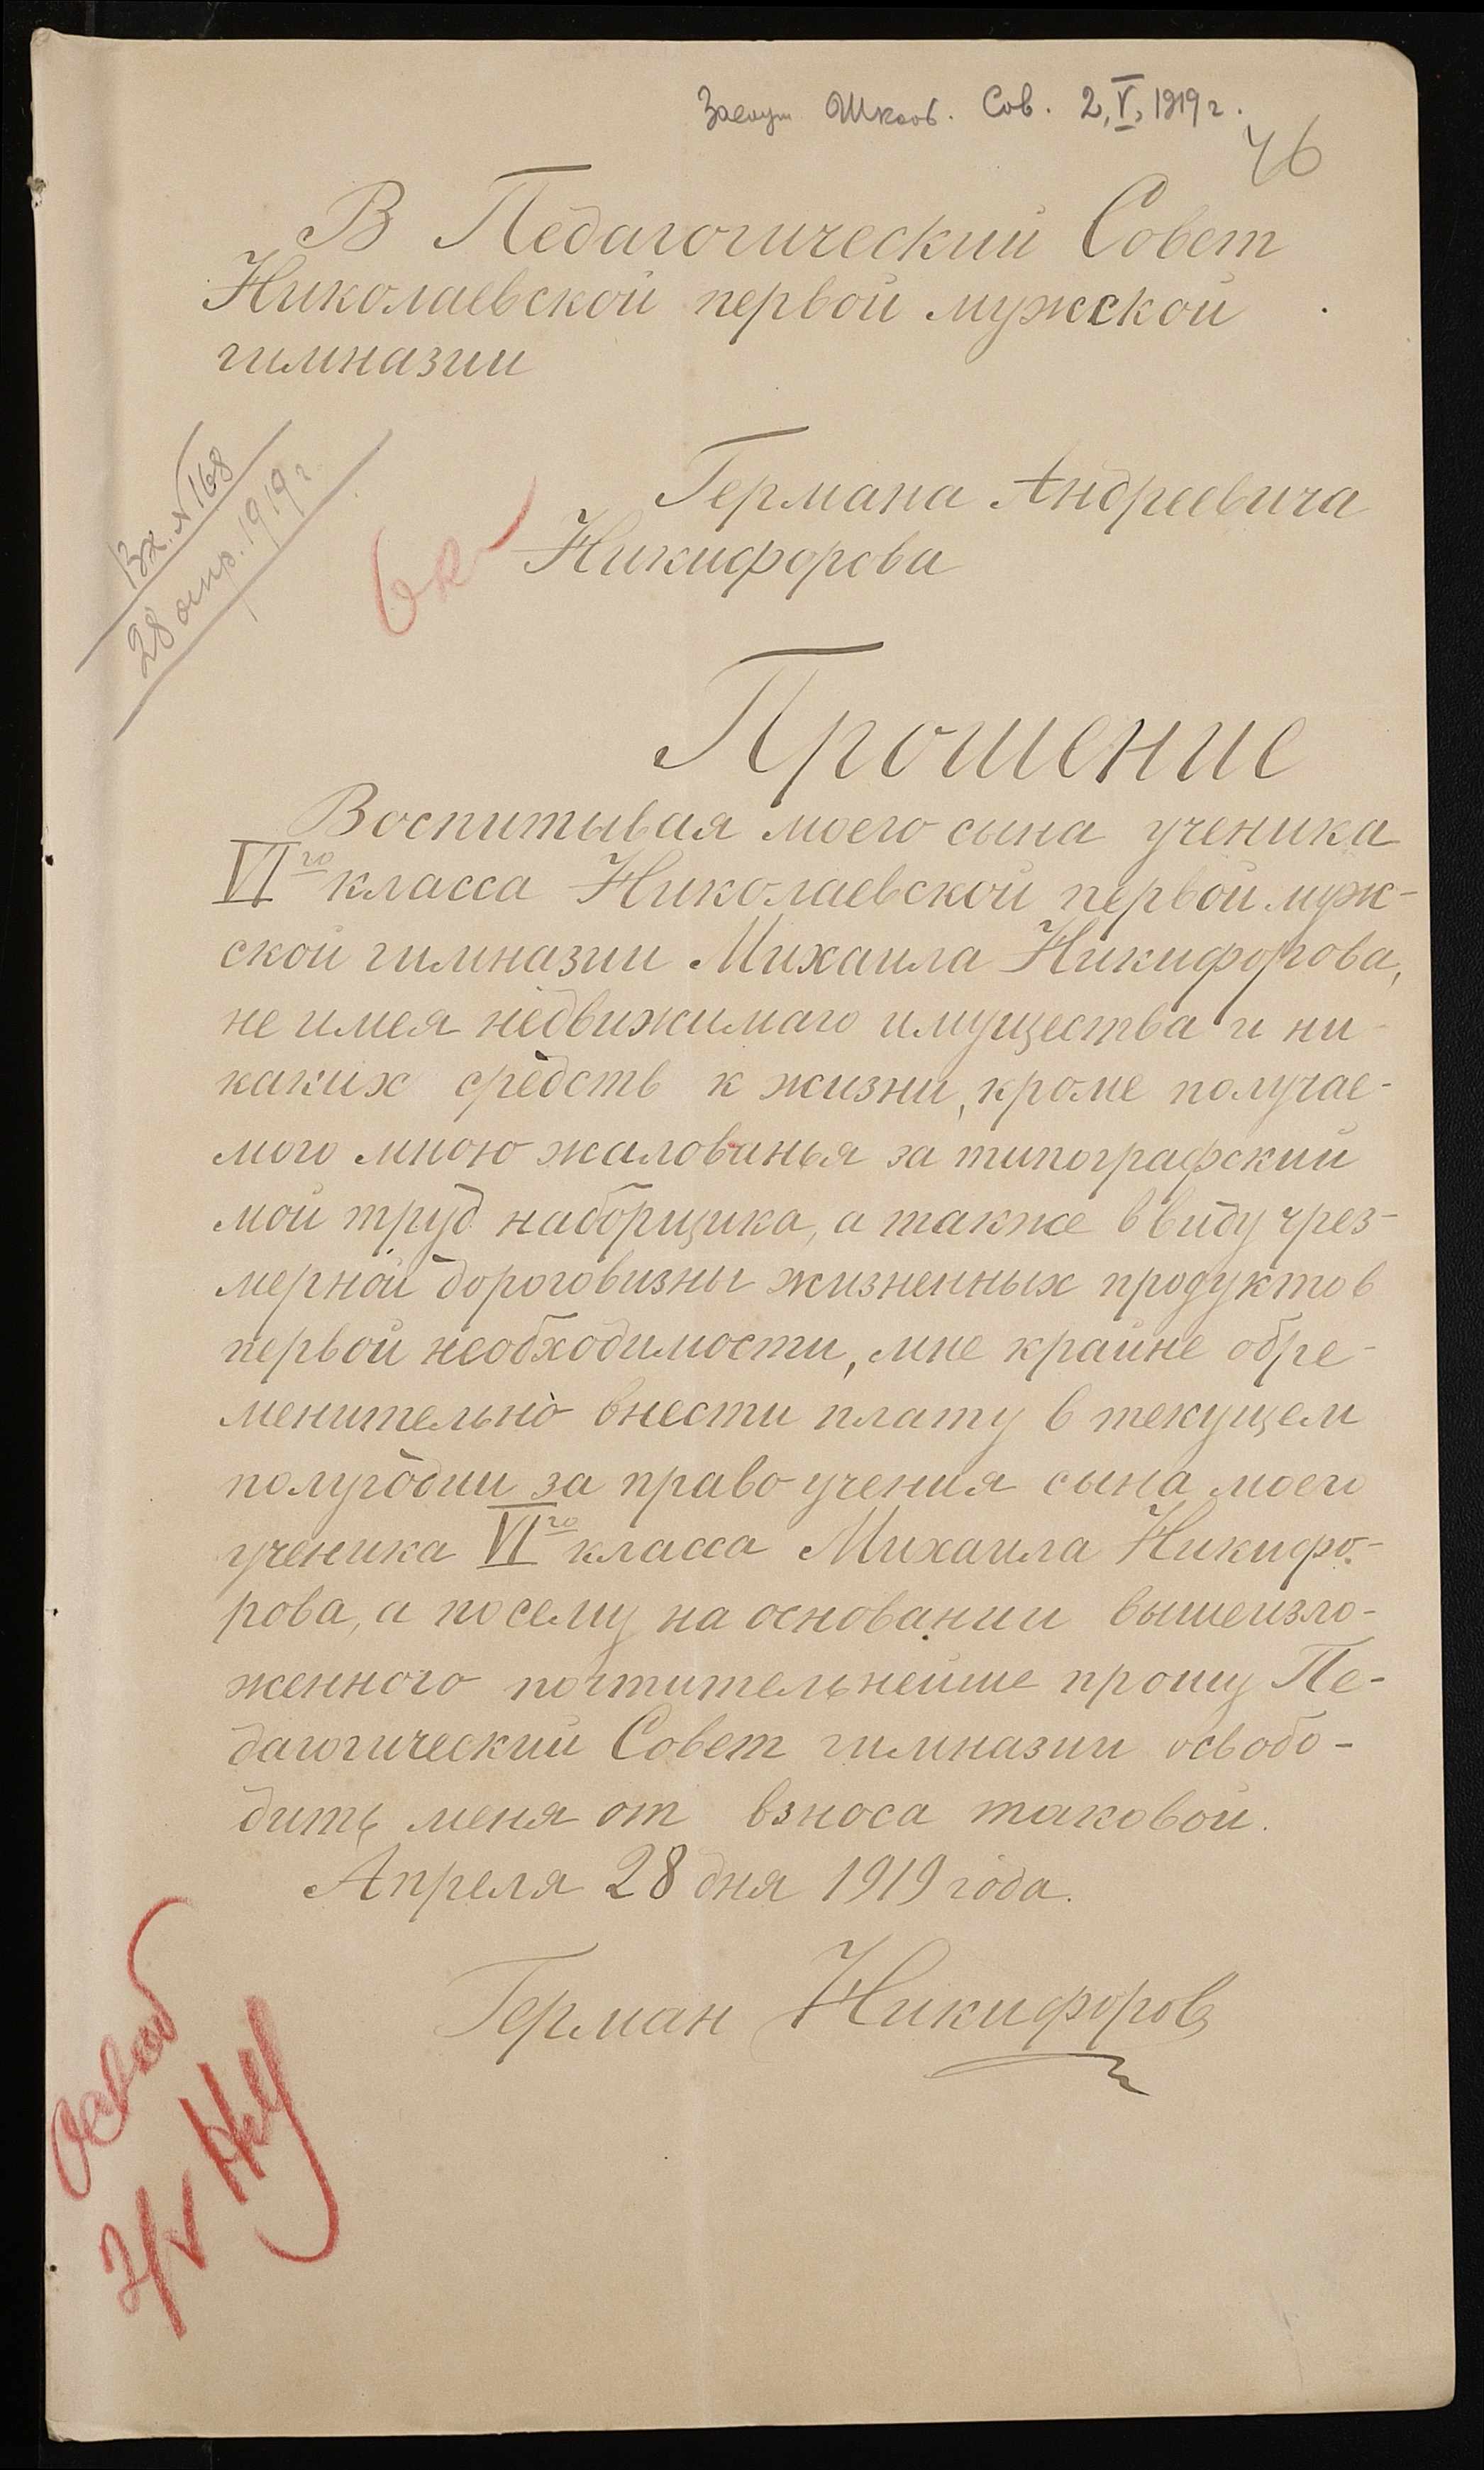 Школ. Сов. 2, V, 1919 г.
76
В Педагогический Совет
Николаевской первой мужской
гимназии
Вх. № 168
28 апр. 1919 г
Германа Андреевича
Никифорова
6 к
Прошение
Воспитывая моего сына ученика
VI го класса Николаевской первой муж-
ской гимназии Михаила Никифорова,
не имея недвижимаго имущества и ни-
каких средств к жизни, кроме получае-
мого мною жалованья за типографский
мой труд наборщика, а также ввиду чрез-
мерной дороговизны жизненных продуктов
первой необходимости, мне крайне обре-
менительно внести плату в текущем
полугодии за право учения сына моего
ученика VI го класса Михаила Никифо-
рова, а посему на основании вышеизло-
женного почтительнейше прошу Пе-
дагогический Совет гимназии освобо-
дить меня от взноса таковой.
Апреля 28 дня 1919 года.
Герман Никифоров
Освоб
2/V